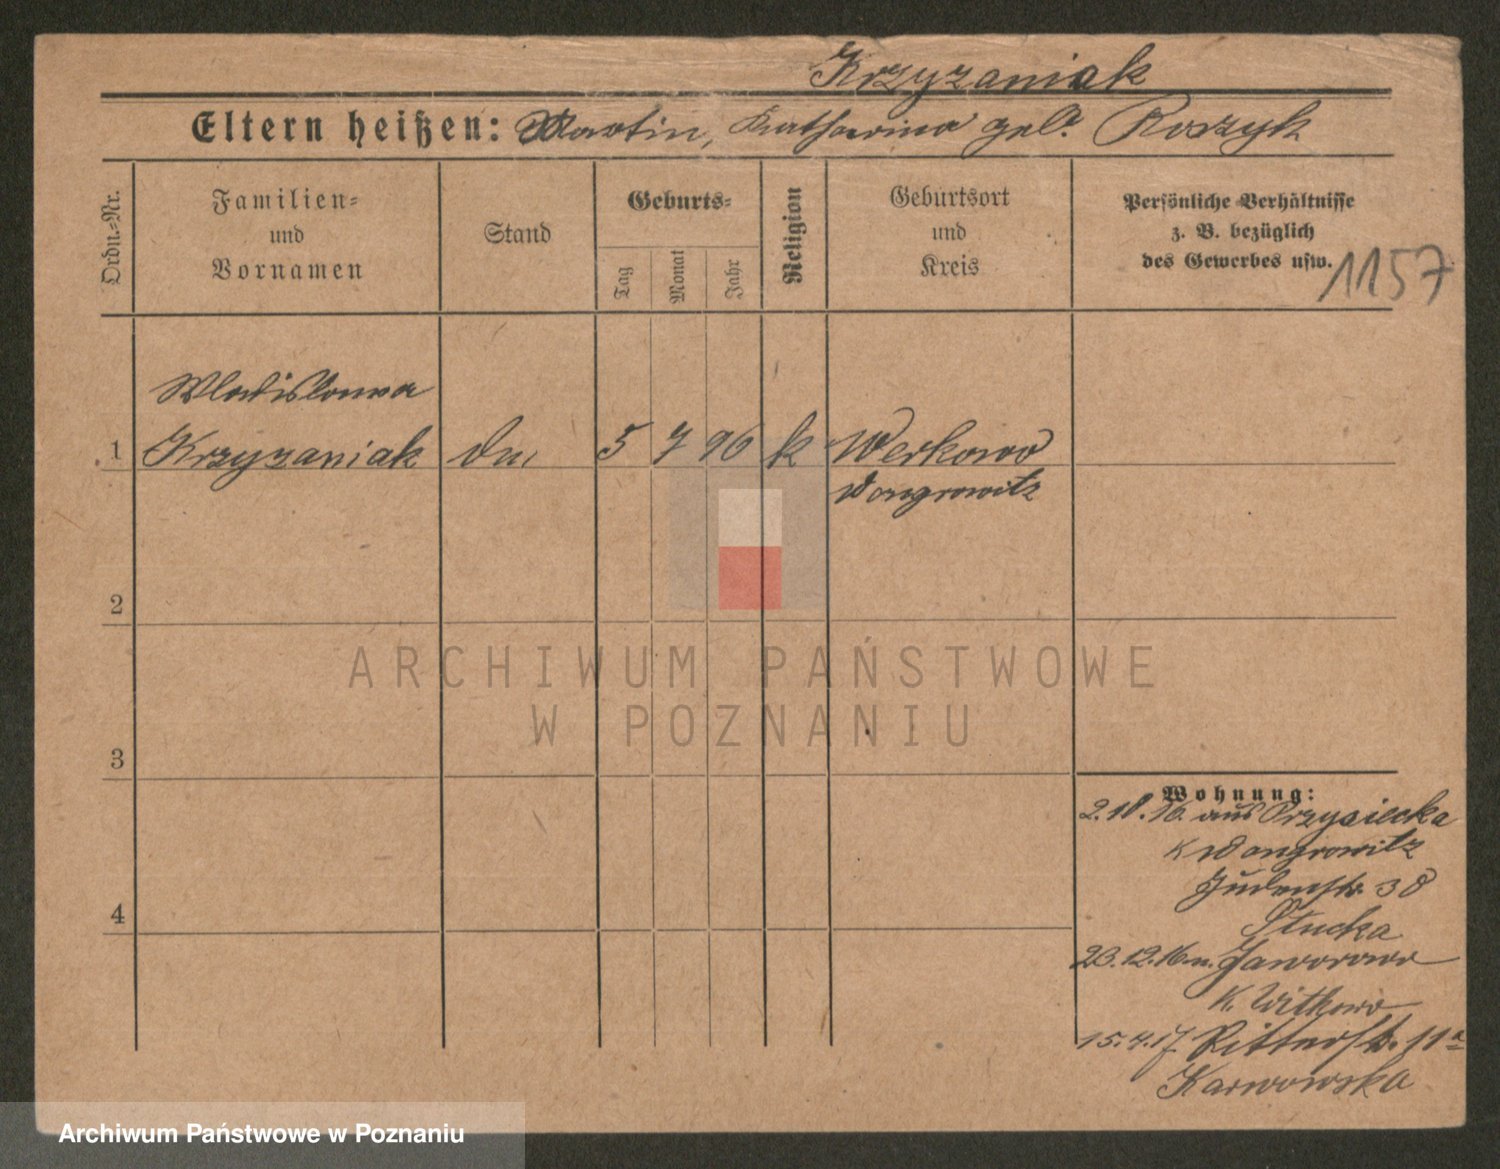 Krzyzaniak
Eltern heißen: Martin, Katharina geb. Roszyk
Ordn.-Nr.
Familien-
und
Vornamen
Stand
Geburts-
Tag
Monat
Jahr
Religion
Geburtsort
und
Kreis
Persönliche Verhältnisse
z. B. bezüglich
des Gewerbes usw.
1157
Wladislawa
1 Krzyzaniak 5 7 96 k Werkowo
Wongrowitz
2
ARCHIWUM PAŃSTWOWE
W POZNANIU
3
4
Wohnung:
2.10.16. aus Przysiecka
K Wongrowitz
Judenstr. 38
Stucka
23.12.16 n. Jaworowo
K. Witkowo
15.4.17 Ritterstr. 11a
Karwowska
Archiwum Państwowe w Poznaniu